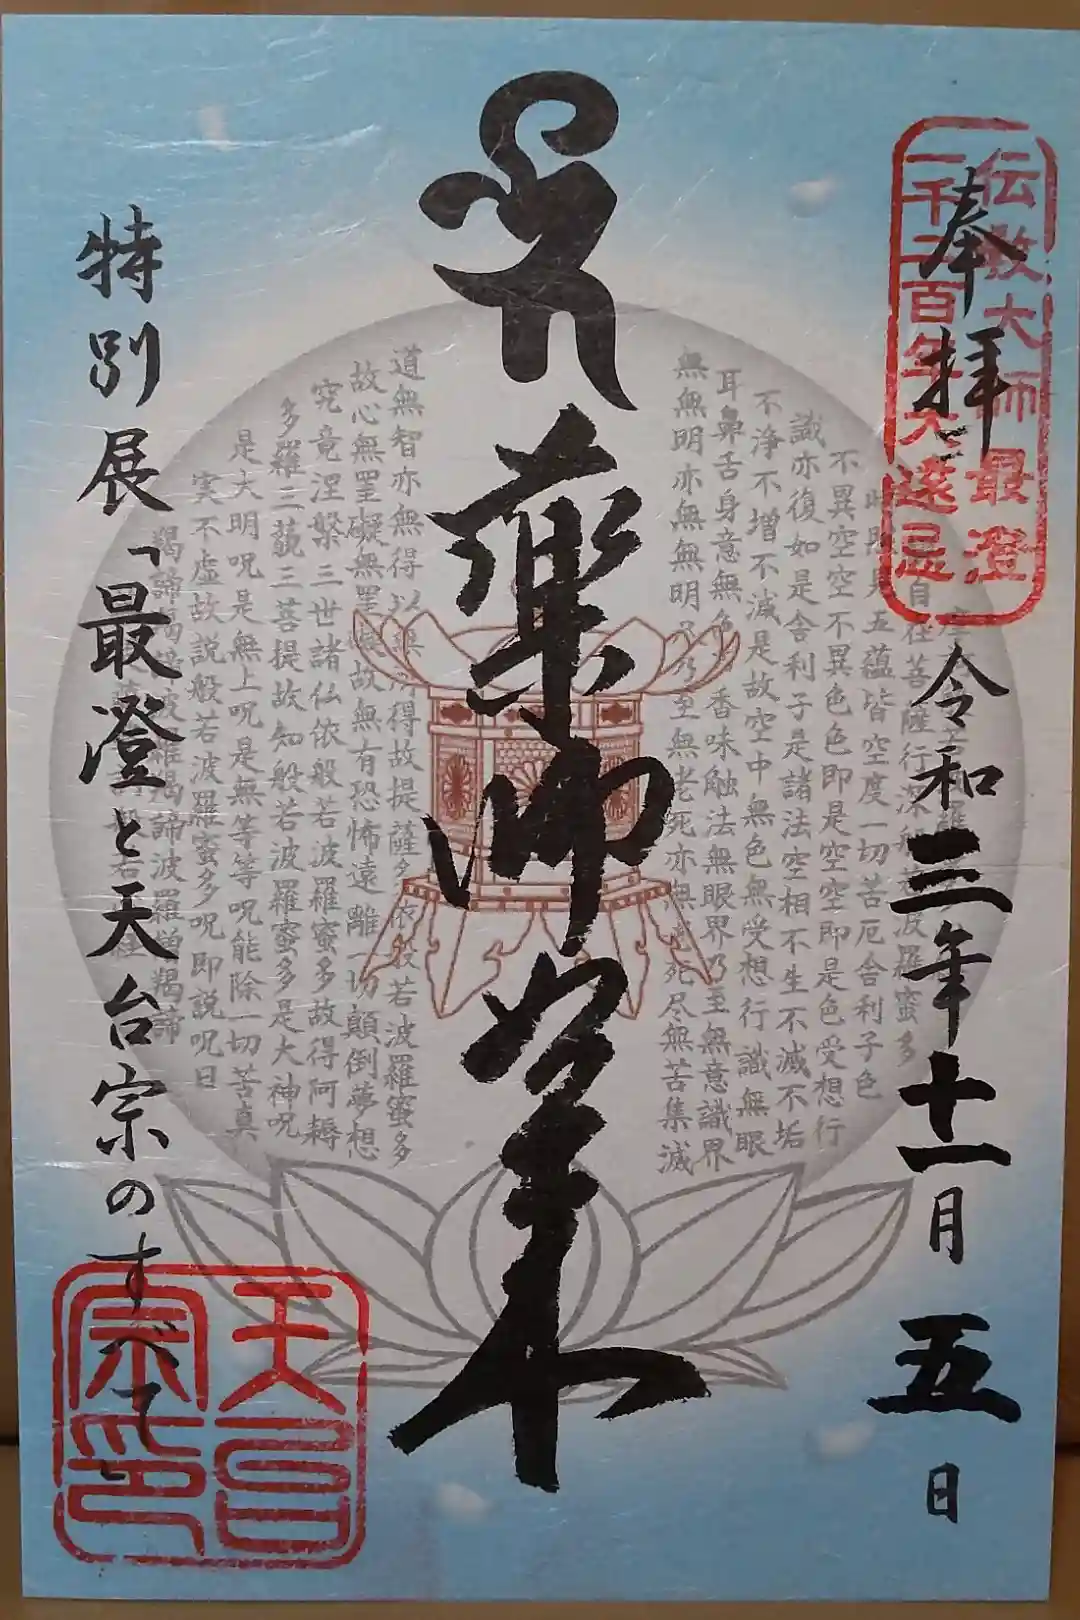 伝教大師最澄
一千二百年大遠忌
奉拝
令和三年十一月五日
薬師如来
特別展「最澄と天台宗のすべて」
天台宗印
自在菩薩行深般若波羅蜜多
時照見五蘊皆空度一切苦厄舎利子色
不異空空不異色色即是空空即是色受想行
識亦復如是舎利子是諸法空相不生不滅不垢
不浄不増不減是故空中無色無受想行識無眼
耳鼻舌身意無色香味触法無眼界乃至無意識界
無無明亦無無明尽乃至無老死亦無老死尽無苦集滅
道無智亦無得以無所得故提薩依般若波羅蜜多
故心無罣礙無罣礙故無有恐怖遠離一切顛倒夢想
究竟涅槃三世諸仏依般若波羅蜜多故得阿耨
多羅三藐三菩提故知般若波羅蜜多是大神呪
是大明呪是無上呪是無等等呪能除一切苦真
実不虚故説般若波羅蜜多呪即説呪曰
羯諦羯諦波羅羯諦波羅僧羯諦